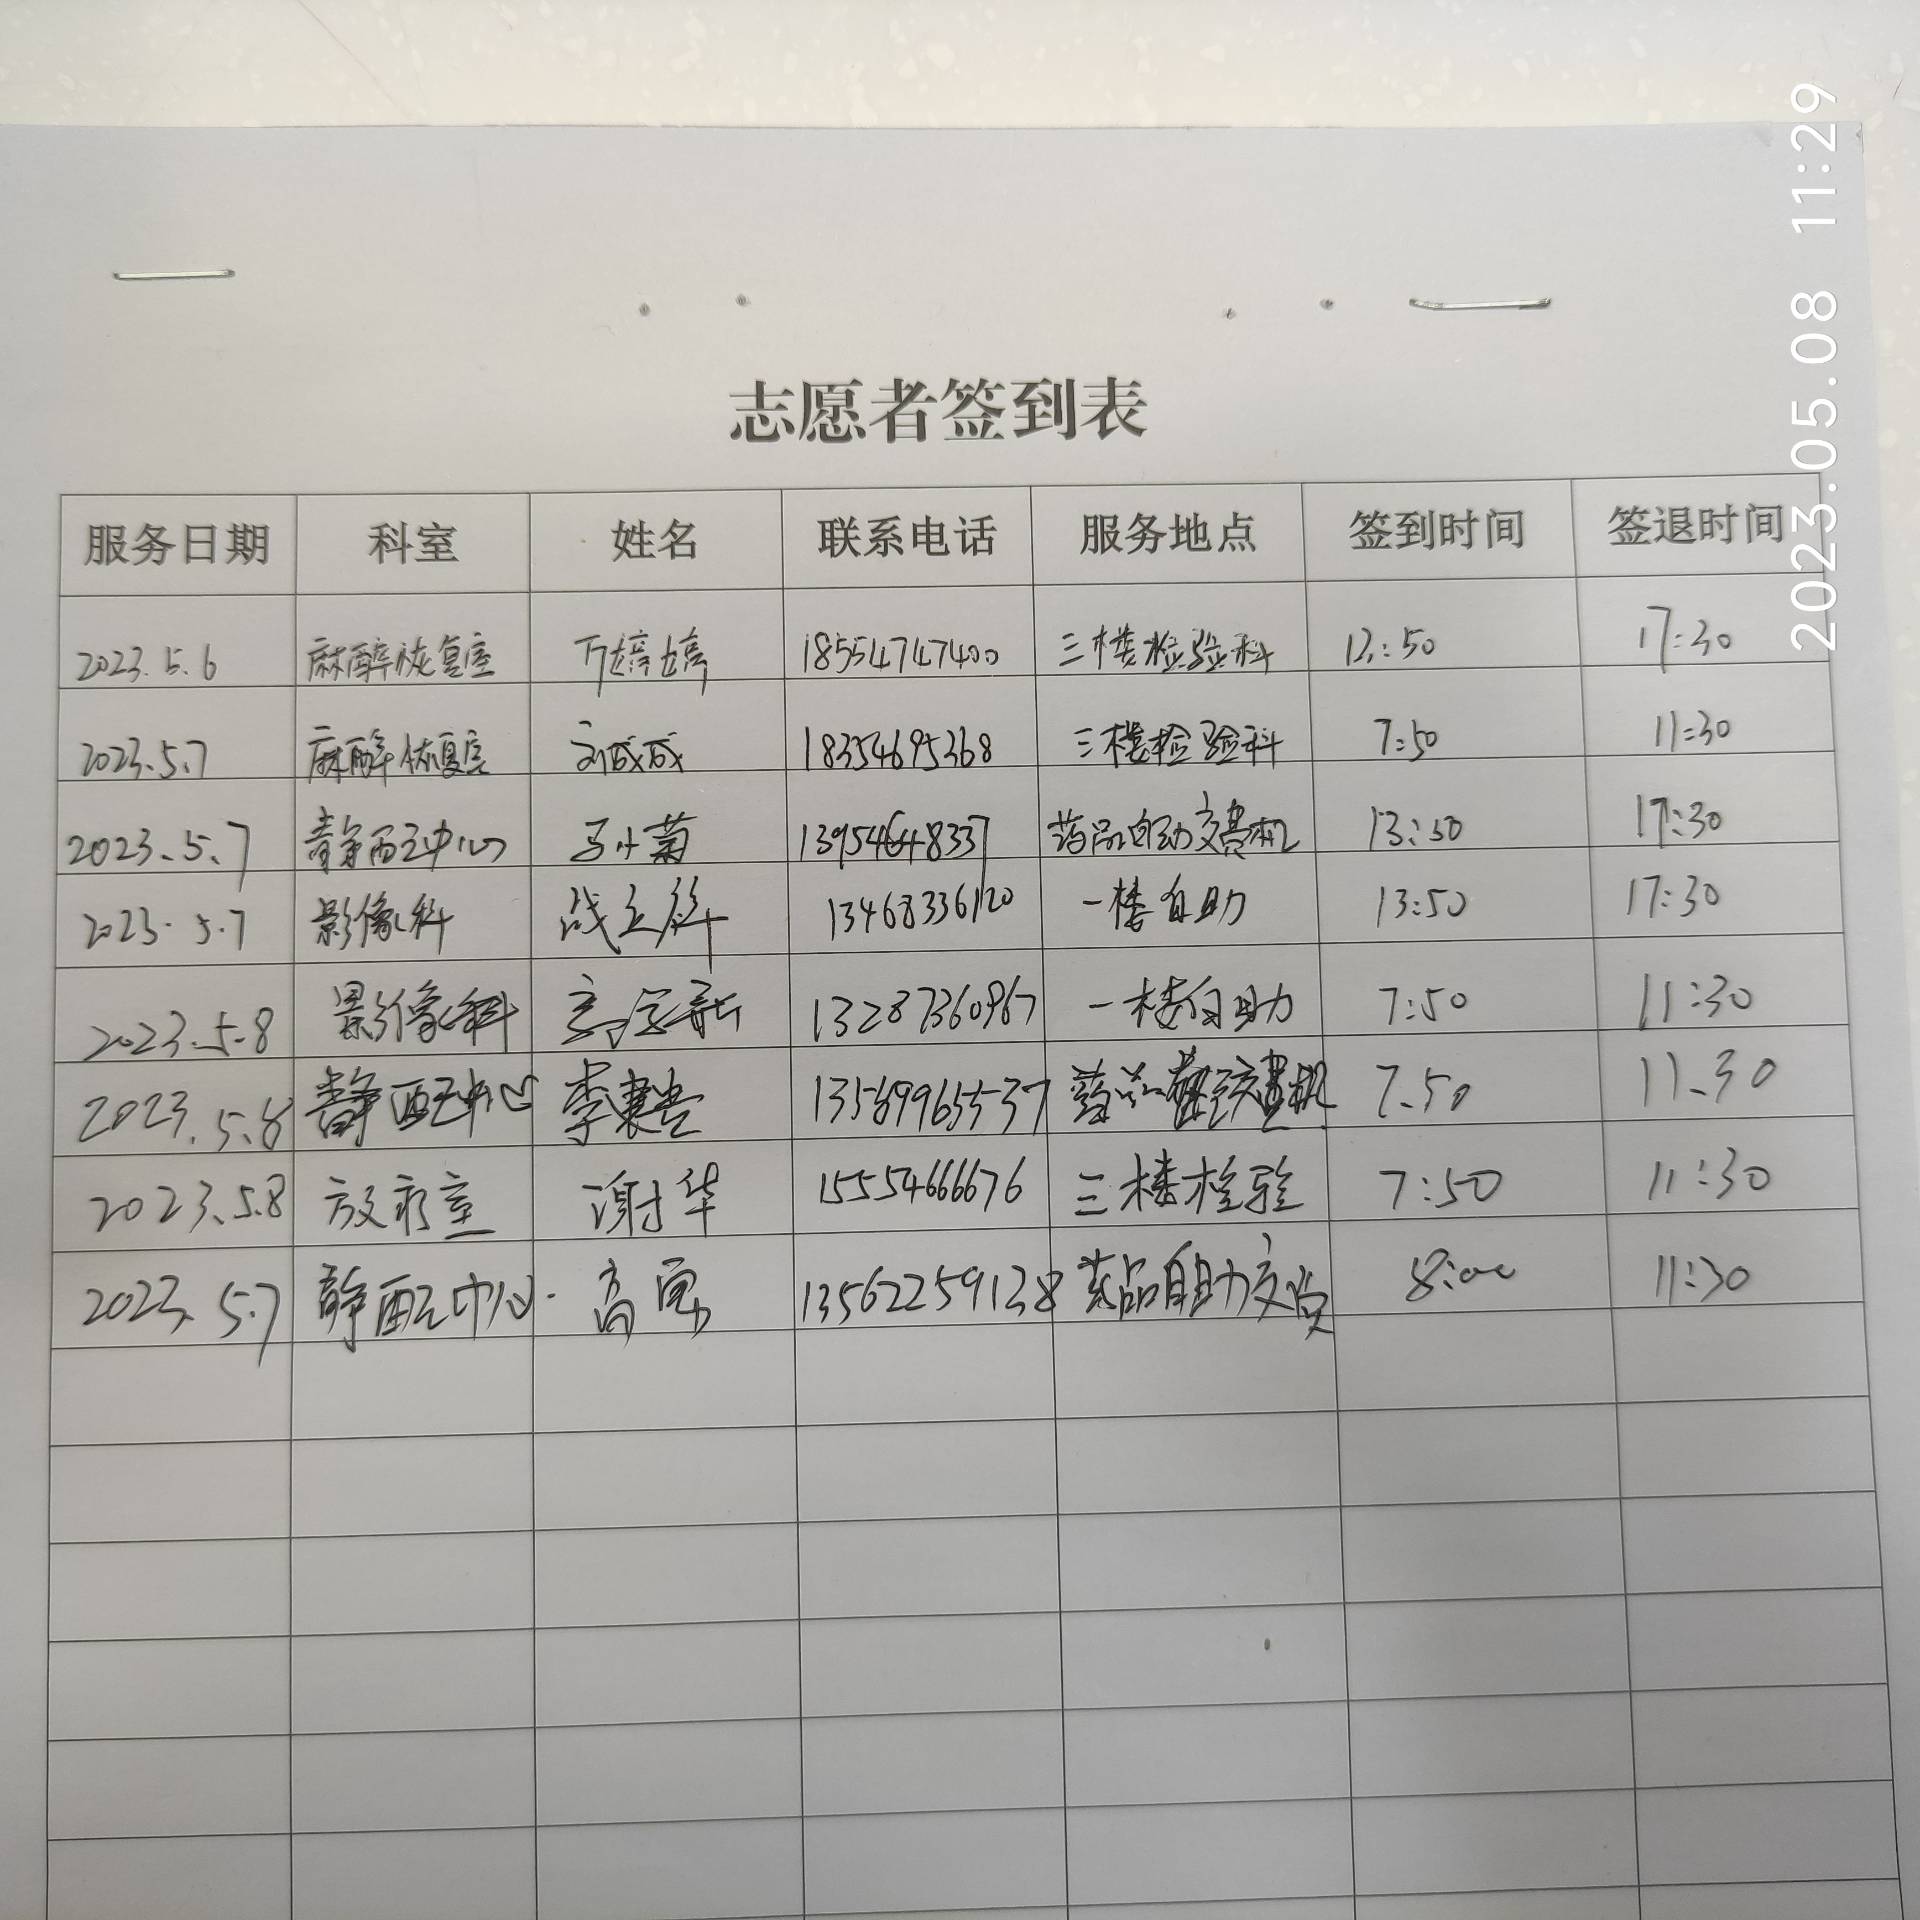 2023.05.08 11:29
志愿者签到表
服务日期 科室 姓名 联系电话 服务地点 签到时间 签退时间
2023.5.6 麻醉恢复室 万婷婷 18554747400 三楼检验科 17:30
2023.5.7 麻醉恢复室 刘成成 18354695368 三楼检验科 7:50 11:30
2023.5.7 静配中心 马小菊 药品自动交费机 13:50 17:30
2023.5.7 影像科 战立 13468336120 一楼自助 13:50 17:30
2023.5.8 影像科 13287360967 一楼自助 7:50 11:30
2023.5.8 静配中心 李 药品 7.50 11.30
2023.5.8 放疗室 谢华 15554666676 三楼检验 7:50 11:30
2023.5.7 静配中心. 高 13562259138 药品自助交费 8:00 11:30